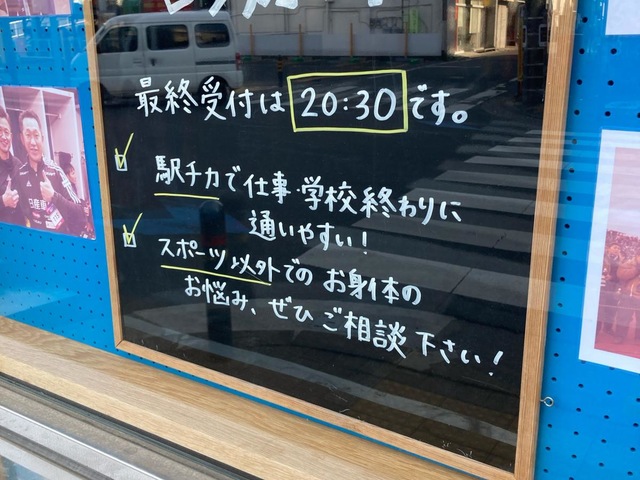 最終受付は 20:30 です。
駅チカで仕事・学校終わりに
通いやすい!
スポーツ以外でのお身体の
お悩み、ぜひご相談下さい!